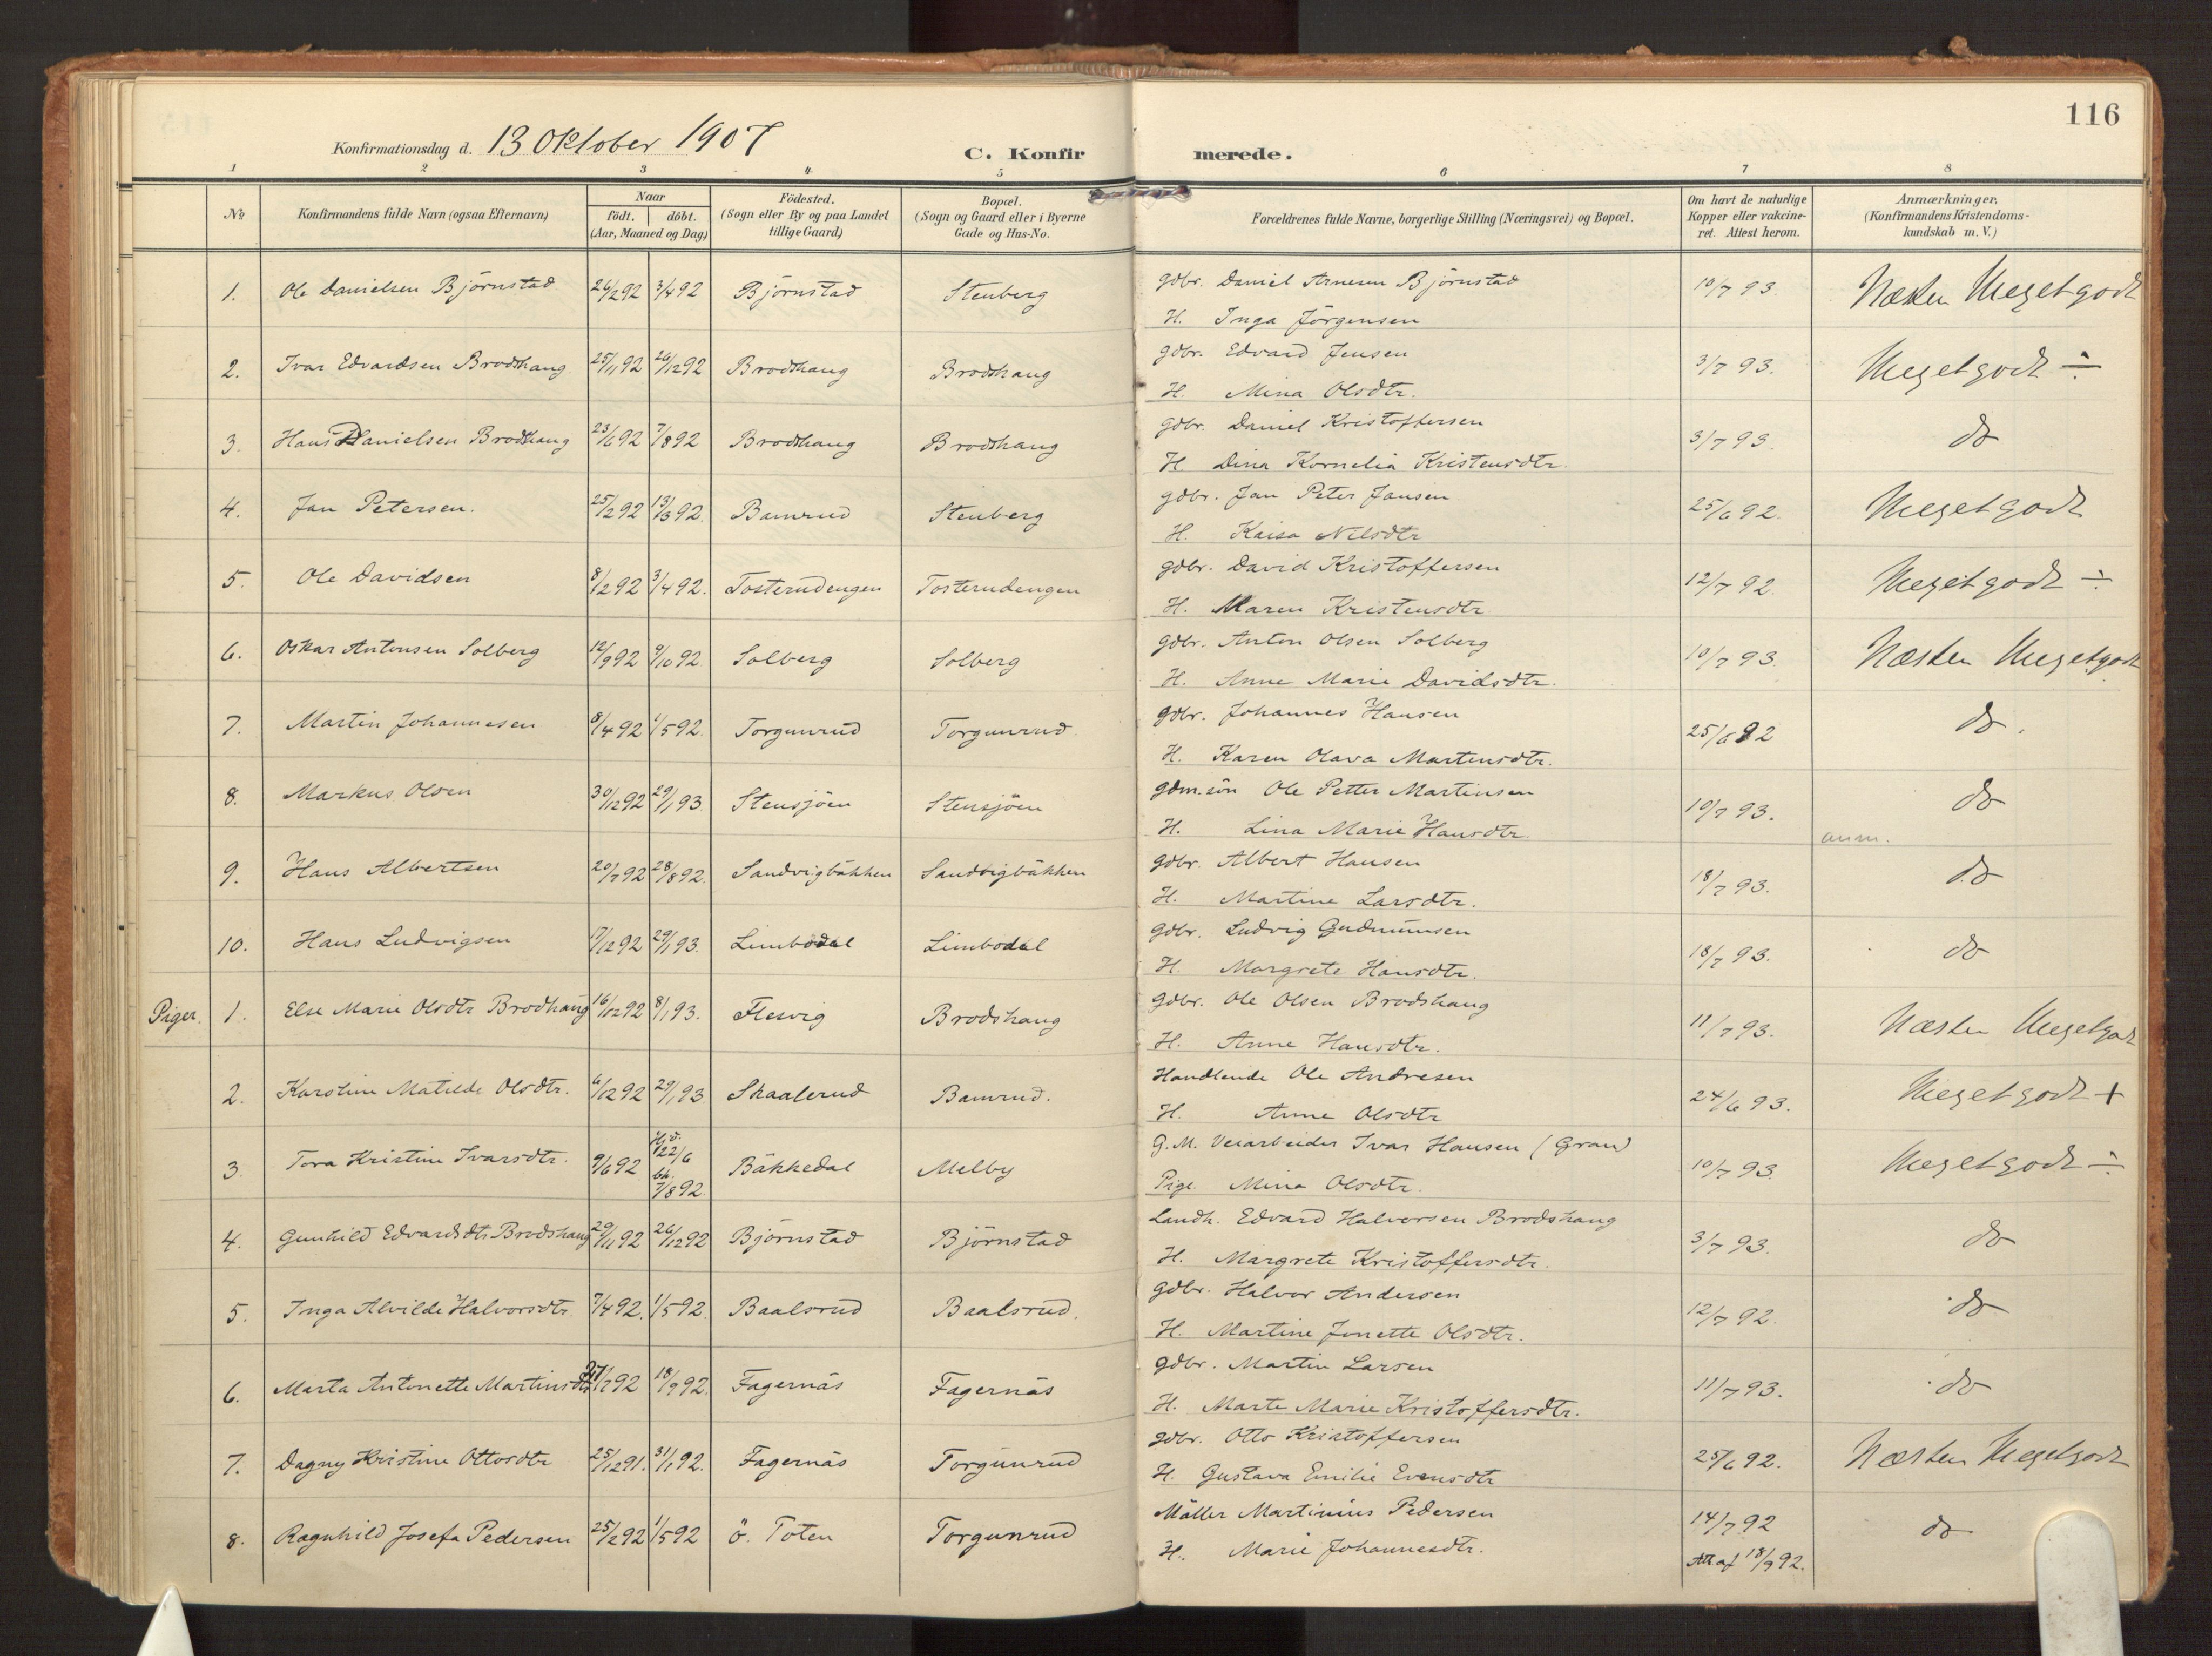 116
Konfirmationsdag d. 13 Oktober 1907
C. Konfirmerede.
1 2 3 4 5 6 7 8
No
Konfirmandens fulde Navn (ogsaa Efternavn)
Naar
födt. döbt.
(Aar, Maaned og Dag)
Födested.
(Sogn eller By og paa Landet
tillige Gaard)
Bopæl.
(Sogn og Gaard eller i Byerne
Gade og Hus-No.
Forældrenes fulde Navne, borgerlige Stilling (Næringsvei) og Bopæl.
Om havt de naturlige
Kopper eller vakcine-
ret. Attest herom.
Anmærkninger,
(Konfirmandens Kristendoms-
kundskab m. V.)
1. Ole Danielsen Björnstad 26/2 92 3/4 92 Björnstad Stenberg gdbr. Daniel Arnesen Björnstad 10/7 93. Næsten Megetgodt
H. Inga Jörgensen
2. Ivar Edvardsen Brodshaug 25/11 92 26/12 92 Brodshaug Brodshaug gdbr. Edvard Jensen 3/7 93. Megetgodt ÷
H. Mina Olsdtr.
3. Hans Danielsen Brodshaug 23/6 92 7/8 92 Brodshaug Brodshaug gdbr. Daniel Kristoffersen 3/7 93. do
H. Dina Kornelia Kristensdtr.
4. Jan Petersen. 25/2 92 13/3 92. Bamrud Stenberg gdbr. Jan Peter Jansen 25/6 92. Megetgodt
H. Kaisa Nilsdtr
5. Ole Davidsen 8/2 92 3/4 92. Tosterudengen Tosterudengen gdbr. David Kristoffersen 12/7 92. Megetgodt ÷
H. Maren Kristensdtr.
6. Oskar Antonsen Solberg 12/9 92 9/10 92 Solberg Solberg gdbr. Anton Olsen Solberg 10/7 93. Næsten Megetgodt
H. Anne Marie Davidsdtr.
7. Martin Johannesen 8/4 92 1/5 92. Torgunrud Torgunrud. gdbr. Johannes Hansen 25/6 92 do.
H. Karen Olava Martensdtr.
8. Markus Olsen 30/12 92 29/1 93 Stensjöen Stensjöen gdm.sön Ole Petter Martinsen 10/7 93. do
H. Lina Marie Hansdtr. anm.
9. Hans Albertsen 20/7 92 28/8 92. Sandvigbäkken Sandvigbäkken gdbr. Albert Hansen 18/7 93. do
H. Martine Larsdtr.
10. Hans Ludvigsen 17/12 92 29/1 93. Limbodal Limbodal gdbr. Ludvig Gudmunsen 18/7 93. do
H. Margrete Hansdtr.
Piger. 1. Else Marie Olsdtr Brodshaug 16/12 92 8/1 93. Flesvig Brodshaug gdbr. Ole Olsen Brodshaug 11/7 93. Næsten Megetgodt
H. Anne Hansdtr.
2. Karoline Matilde Olsdtr. 6/12 92 29/1 93 Skaalerud Bamrud. Handlende Ole Andresen 24/6 93. Megetgodt +
H. Anne Olsdtr
3. Tora Kristine Ivarsdtr. 9/6 92 22/6 bk. 7/8 92 Bäkkedal Melby G.M. Veiarbeider Ivar Hansen (Gran) 10/7 93. Megetgodt ÷
Pige. Mina Olsdtr.
4. Gunhild Edvardsdtr Brodshaug 29/11 92 26/12 92 Björnstad Björnstad Landh. Edvard Halvorsen Brodshaug 3/7 93. do
H. Margrete Kristoffersdtr.
5. Inga Alvilde Halvorsdtr. 7/4 92. 1/5 92. Baalsrud Baalsrud. gdbr. Halvor Andersen 12/7 92. do
H. Martine Jonette Olsdtr.
6. Marta Antonette Martinsdtr 27/7 92 18/9 92. Fagernäs Fagernäs gdbr. Martin Larsen 11/7 93. do
H. Marte Marie Kristoffersdtr.
7. Dagny Kristine Ottosdtr 25/12 91. 31/1 92. Fagernäs Torgunrud gdbr. Otto Kristoffersen 25/6 92. Næsten Megetgodt
H. Gustava Emilie Evensdtr
8. Ragnhild Josefa Pedersen 25/2 92 1/5 92 ö. Toten Torgunrud Möller Martinius Pedersen 14/7 92 do
H. Marie Johannesdtr. Att af 18/9 92.